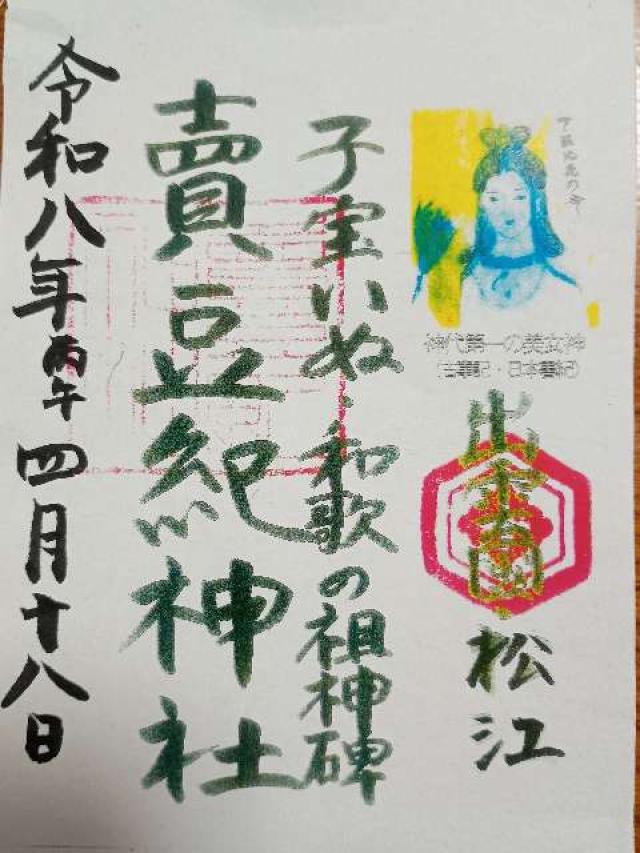 下照比売の命
神代第一の美女神
(古事記・日本書紀)
出雲國・松江
子宝いぬ・和歌の祖神碑
賣豆紀神社
令和八年丙午四月十八日